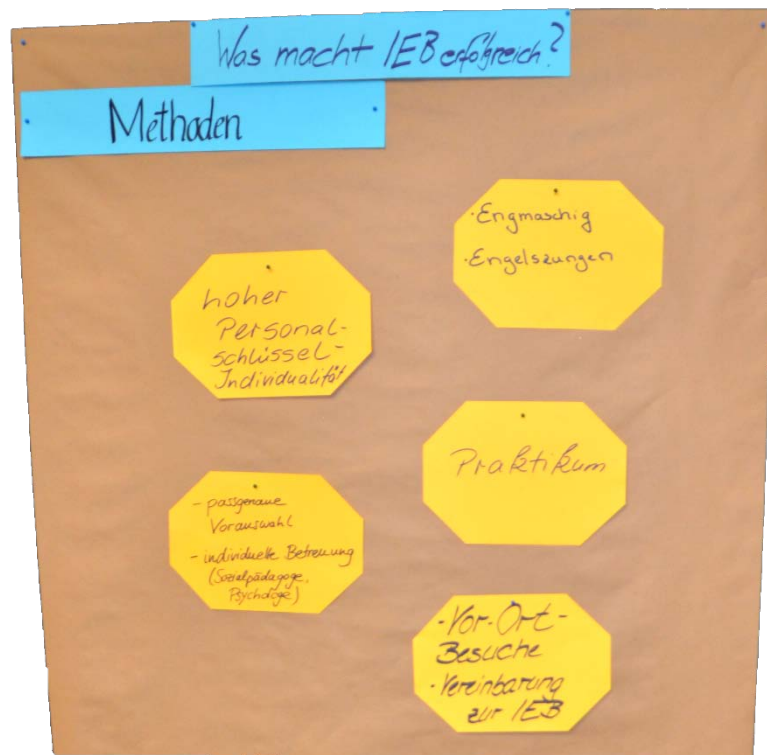 Was macht IEB erfolgreich?
Methoden
· Engmaschig
· Engelszungen
hoher
Personal-
schlüssel-
Individualität
Praktikum
- passgenaue
Vorauswahl
- individuelle Betreuung
(Sozialpädagoge,
Psychologe)
- Vor-Ort-
Besuche
· Vereinbarung
zur IEB